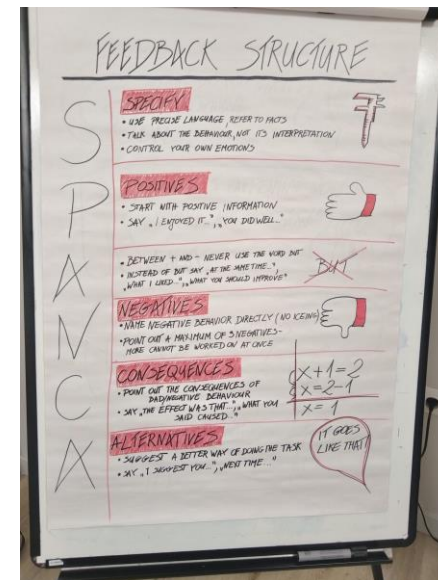 FEEDBACK STRUCTURE
S
SPECIFY
• USE PRECISE LANGUAGE, REFER TO FACTS
• TALK ABOUT THE BEHAVIOUR, NOT ITS INTERPRETATION
• CONTROL YOUR OWN EMOTIONS
P
POSITIVES
• START WITH POSITIVE INFORMATION
• SAY „I ENJOYED IT...", „YOU DID WELL..."
A
• BETWEEN + AND - NEVER USE THE WORD BUT
• INSTEAD OF BUT SAY „AT THE SAME TIME...",
„WHAT I LIKED...", „WHAT YOU SHOULD IMPROVE"
BUT
N
NEGATIVES
• NAME NEGATIVE BEHAVIOR DIRECTLY (NO ICEING)
• POINT OUT A MAXIMUM OF 3 NEGATIVES-
MORE CANNOT BE WORKED ON AT ONCE
C
CONSEQUENCES
• POINT OUT THE CONSEQUENCES OF
BAD/NEGATIVE BEHAVIOUR
• SAY „THE EFFECT WAS THAT...", „WHAT YOU
SAID CAUSED..."
x+1=2
x=2-1
x=1
A
ALTERNATIVES
• SUGGEST A BETTER WAY OF DOING THE TASK
• SAY „I SUGGEST YOU...", „NEXT TIME..."
IT GOES
LIKE THAT!